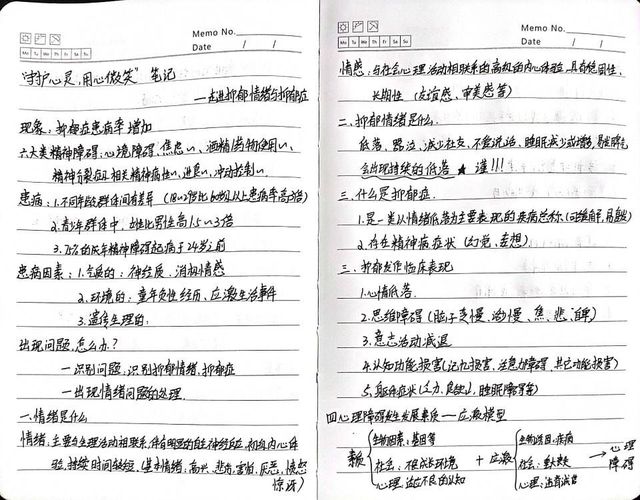 Memo No.
Mo Tu We Th Fr Sa Su
Date / /
"守护心灵,用心微笑" 笔记
——走进抑郁情绪与抑郁症
现象:抑郁症患病率增加
六大类精神障碍:心境障碍、焦虑〃、酒精/药物使用〃、
精神分裂症及相关精神病性〃、进食〃、冲动控制〃.
患病:1.不同年龄群体间有差异
2.青少年群体中,女性比男性高1.5~3倍
3.75%的成年精神障碍起病于24岁之前
患病因素:1.气质的:神经质、消极情感
2.环境的:童年负性经历、应激生活事件
3.遗传生理的.
出现问题,怎么办?
—识别问题,识别抑郁情绪、抑郁症
—出现情绪问题的处理.
一.情绪是什么
情绪:主要与生理活动相联系,伴有明显的自主神经反应,初级内心体
验,持续时间较短.(基本情绪:高兴、悲伤、害怕、厌恶、愤怒
惊讶)
Memo No.
Mo Tu We Th Fr Sa Su
Date / /
情感:与社会心理活动相联系的高级的内心体验,具有稳固性、
长期性 (友谊感、审美感等)
二.抑郁情绪是什么.
低落、哭泣、减少社交、不爱说话、睡眠减少或增强、易发脾气
会出现持续的低落 ★ 谨!!!
三.什么是抑郁症.
1.是一类以情绪低落为主要表现的疾病总称(可缓解,易复发)
2.存在精神病症状(幻觉、妄想).
三、抑郁发作临床表现
1.心情低落.
2.思维障碍(脑子变慢、动慢、焦、悲、自卑)
3.意志活动减退
4.认知功能损害(记忆损害、注意力障碍、其它功能损害)
5.躯体症状(乏力、食欲↓),睡眠障碍等)
四.心理障碍发生发展素质——应激模型
素质 { 生物因素:基因等
社会:不良成长环境
心理:适应不良的认知
+ 应激 { 生物性因:疾病
社会:
心理:
→ 心理障碍